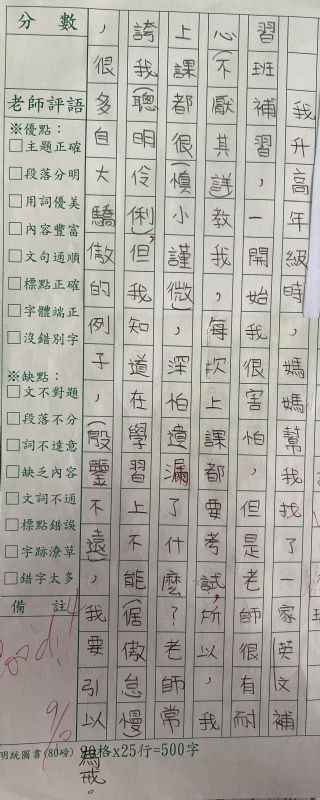 我升高年級時，媽媽幫我找了一家英文補
習班補習，一開始我很害怕，但是老師很有耐
心(不厭其詳)教我，每次上課都要考試，所以，我
上課都很(慎)小謹(微)，深怕遺漏了什麼？老師常
誇我(聰)明伶(俐)，但我知道，在學習上不能(倨)傲怠(慢)
，很多自大驕傲的例子，(殷鑒)不(遠)，我要引以
為戒。
分 數
老師評語
※優點：
□主題正確
□段落分明
□用詞優美
□內容豐富
□文句通順
□標點正確
□字體端正
□沒錯別字
※缺點：
□文不對題
□段落不分
□詞不達意
□缺乏內容
□文詞不通
□標點錯誤
□字跡潦草
□錯字太多
備 註
Good!
9/6
明統圖書(80磅)
格x25行=500字